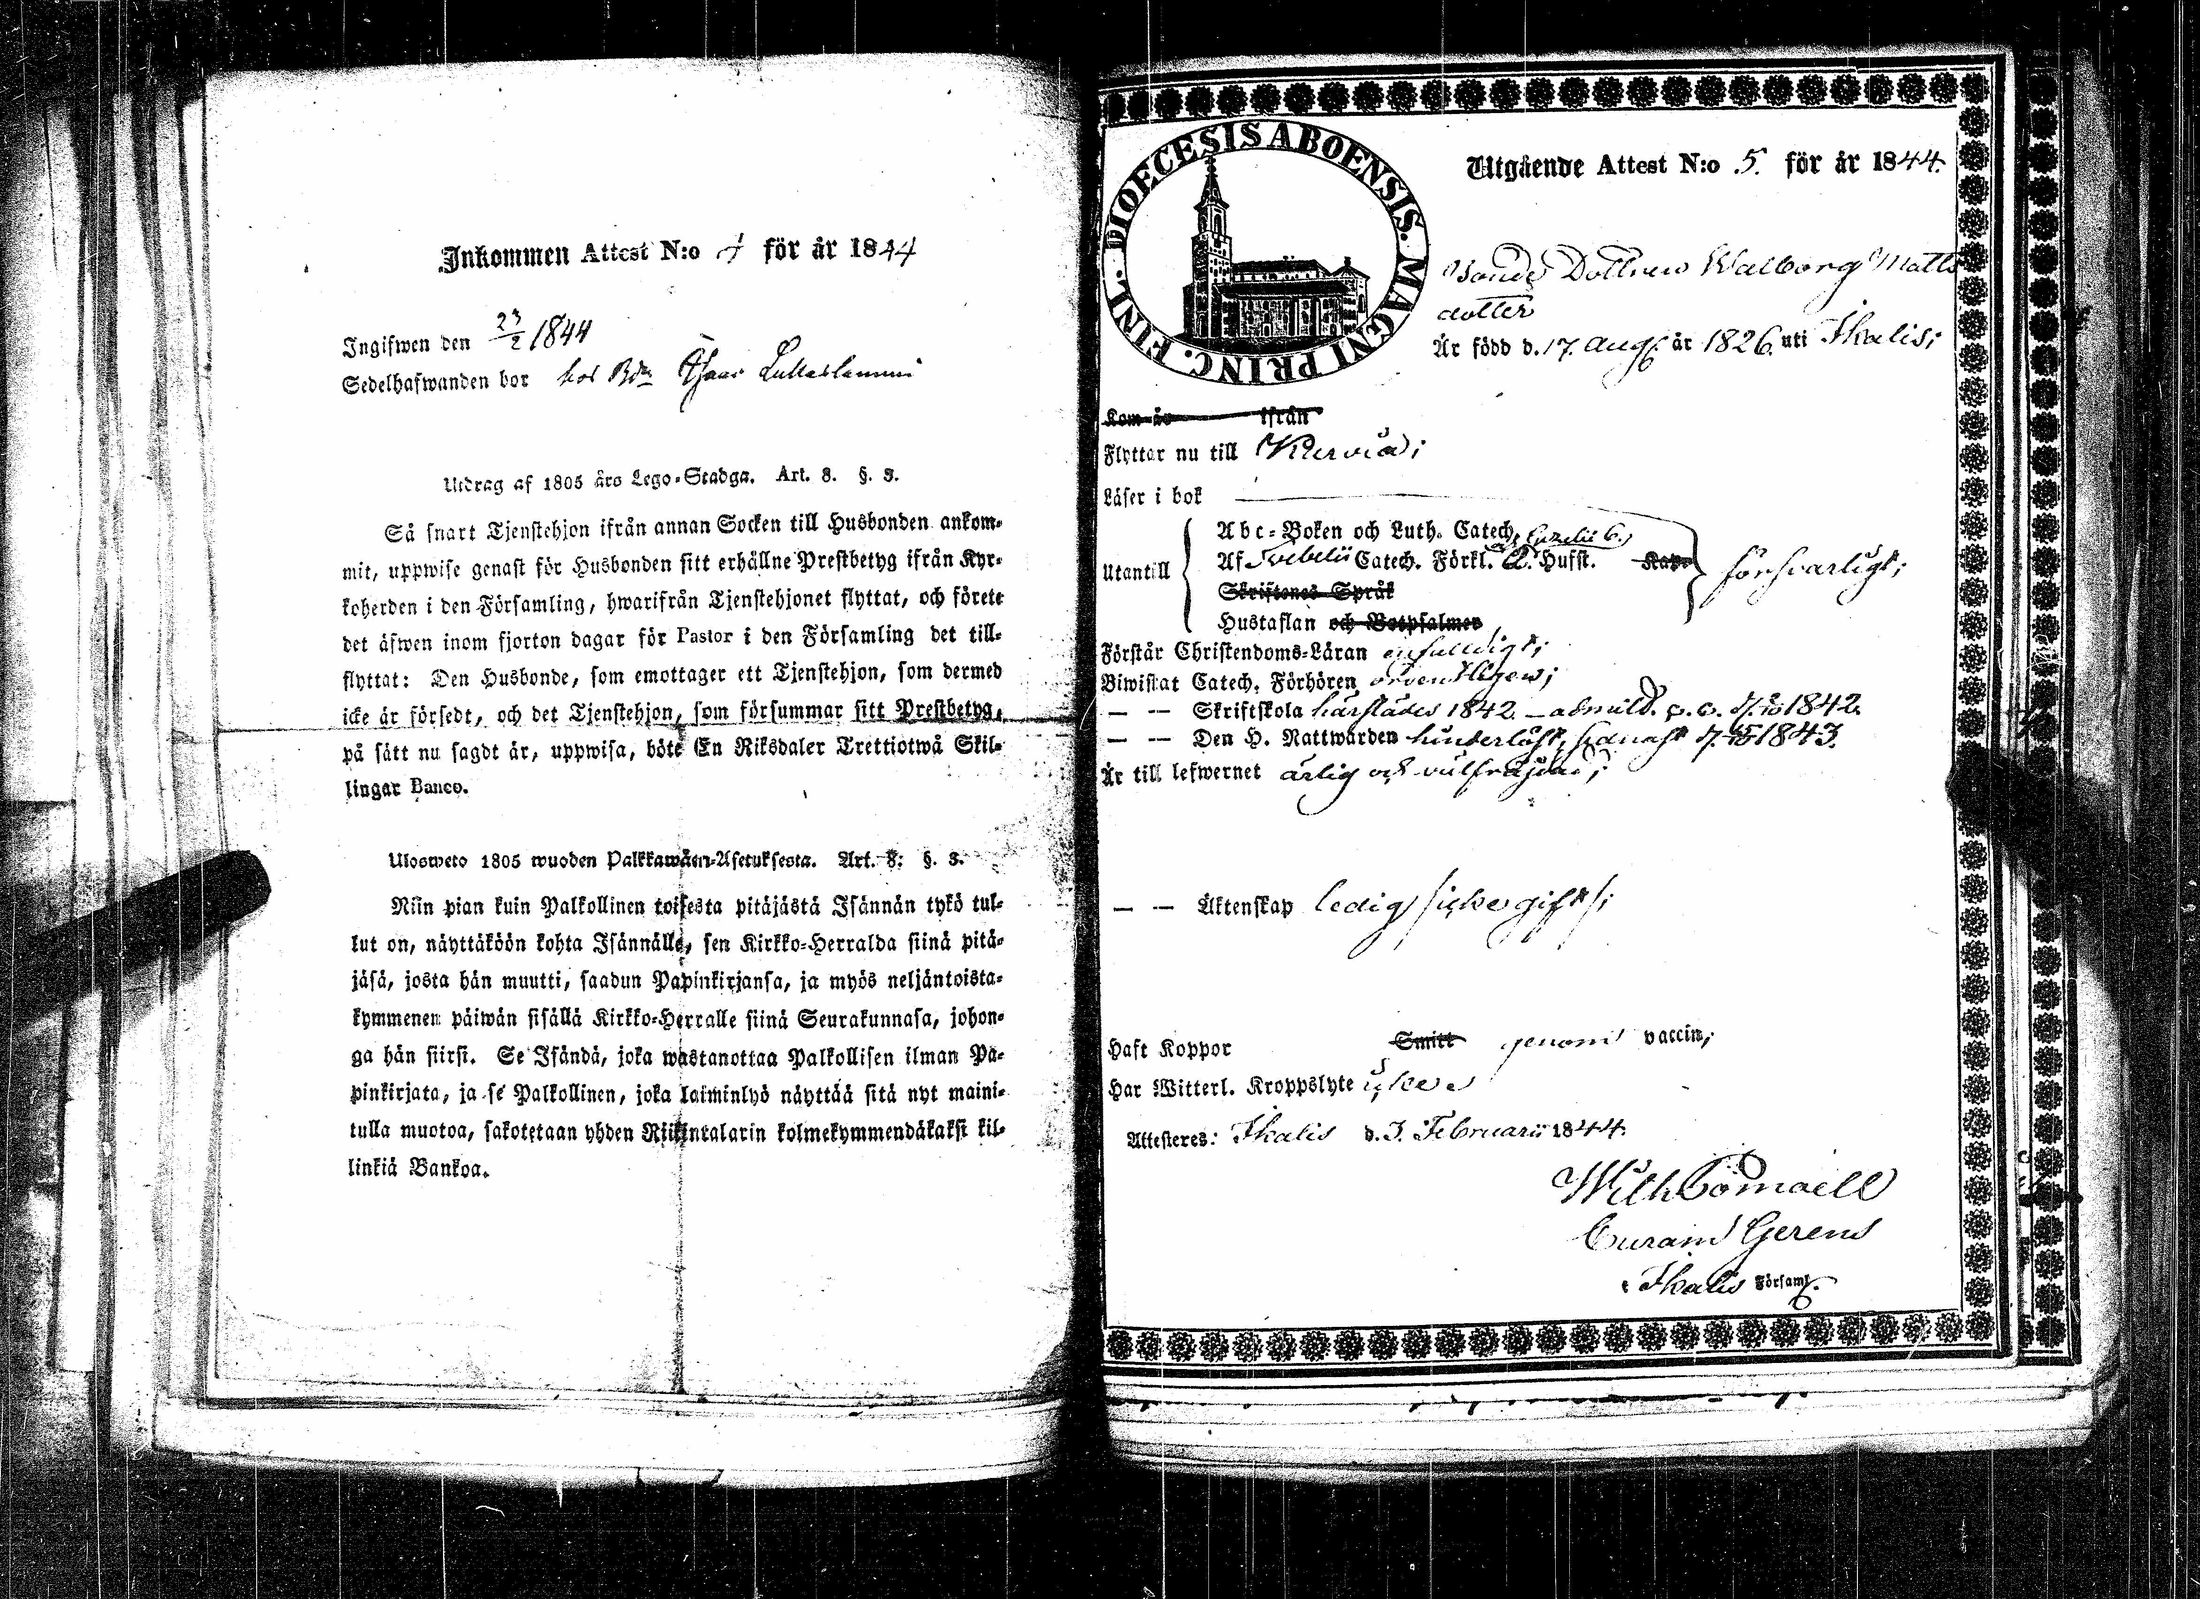 Inkommen Attest N:o för år 1844
Ingifwen den 23/2 1844
Sedelhafwanden bor hos Bdn
Utdrag af 1805 års Lego-Stadga. Art. 8. §. 3.
Så snart Tjenstehjon ifrån annan Socken till Husbonden ankom-
mit, uppwise genast för Husbonden sitt erhållne Prestbetyg ifrån Kyr-
koherden i den Församling, hwarifrån Tjenstehjonet flyttat, och förete
det äfwen inom fjorton dagar för Pastor i den Församling det till-
flyttat: Den Husbonde, som emottager ett Tjenstehjon, som dermed
icke är försedt, och det Tjenstehjon, som försummar sitt Prestbetyg,
på sätt nu sagdt är, uppwisa, böte En Riksdaler Trettiotwå Skil-
lingar Banco.
Ulosweto 1805 wuoden Palkkawäen-Asetuksesta. Art. 8: §. 3.
Niin pian kuin Palkollinen toisesta pitäjästä Isännän tykö tul-
lut on, näyttäköön kohta Isännälle, sen Kirkko-Herralda siinä pitä-
jäsä, josta hän muutti, saadun Papinkirjansa, ja myös neljäntoista-
kymmenen päiwän sisällä Kirkko-Herralle siinä Seurakunnasa, johon-
ga hän siirsi. Se Isändä, joka wastanottaa Palkollisen ilman Pa-
pinkirjata, ja se Palkollinen, joka laiminlyö näyttää sitä nyt maini-
tulla muotoa, sakotetaan yhden Riikintalarin kolmekymmendäkaksi kil-
linkiä Bankoa.
DIOECESIS ABOENSIS. MAGNI PRINC. FINL.
Utgående Attest N:o 5. för år 1844.
Bonde Dottren Walborg Matts
dotter
Är född d. 17. Aug. år 1826. uti Ikalis;
Kom år ifrån
Flyttar nu till Kiervia;
Läser i bok
Utantill
Abc-Boken och Luth. Catech.
Af Svebelii Catech. Förkl. Hufst. Kap.
Skriftenes Språk
Hustaflan och Botpsalmer
försvarligt;
Förstår Christendoms-Läran enfaldigt;
Biwistat Catech. Förhören ordentligen;
— — Skriftskola härstädes 1842. – admitt. 1842.
— — Den H. Nattwarden hinderlöst, senast 1843.
Är till lefwernet ärlig och välfräjdad;
— — Äktenskap ledig /: icke gift :/;
Haft Koppor Smitt genom vaccin;
Har Witterl. Kroppslyte icke
Attesteres: Ikalis d. 3. Februarii 1844.
Wilh.
Curam Gerens
i Ikalis Församl.